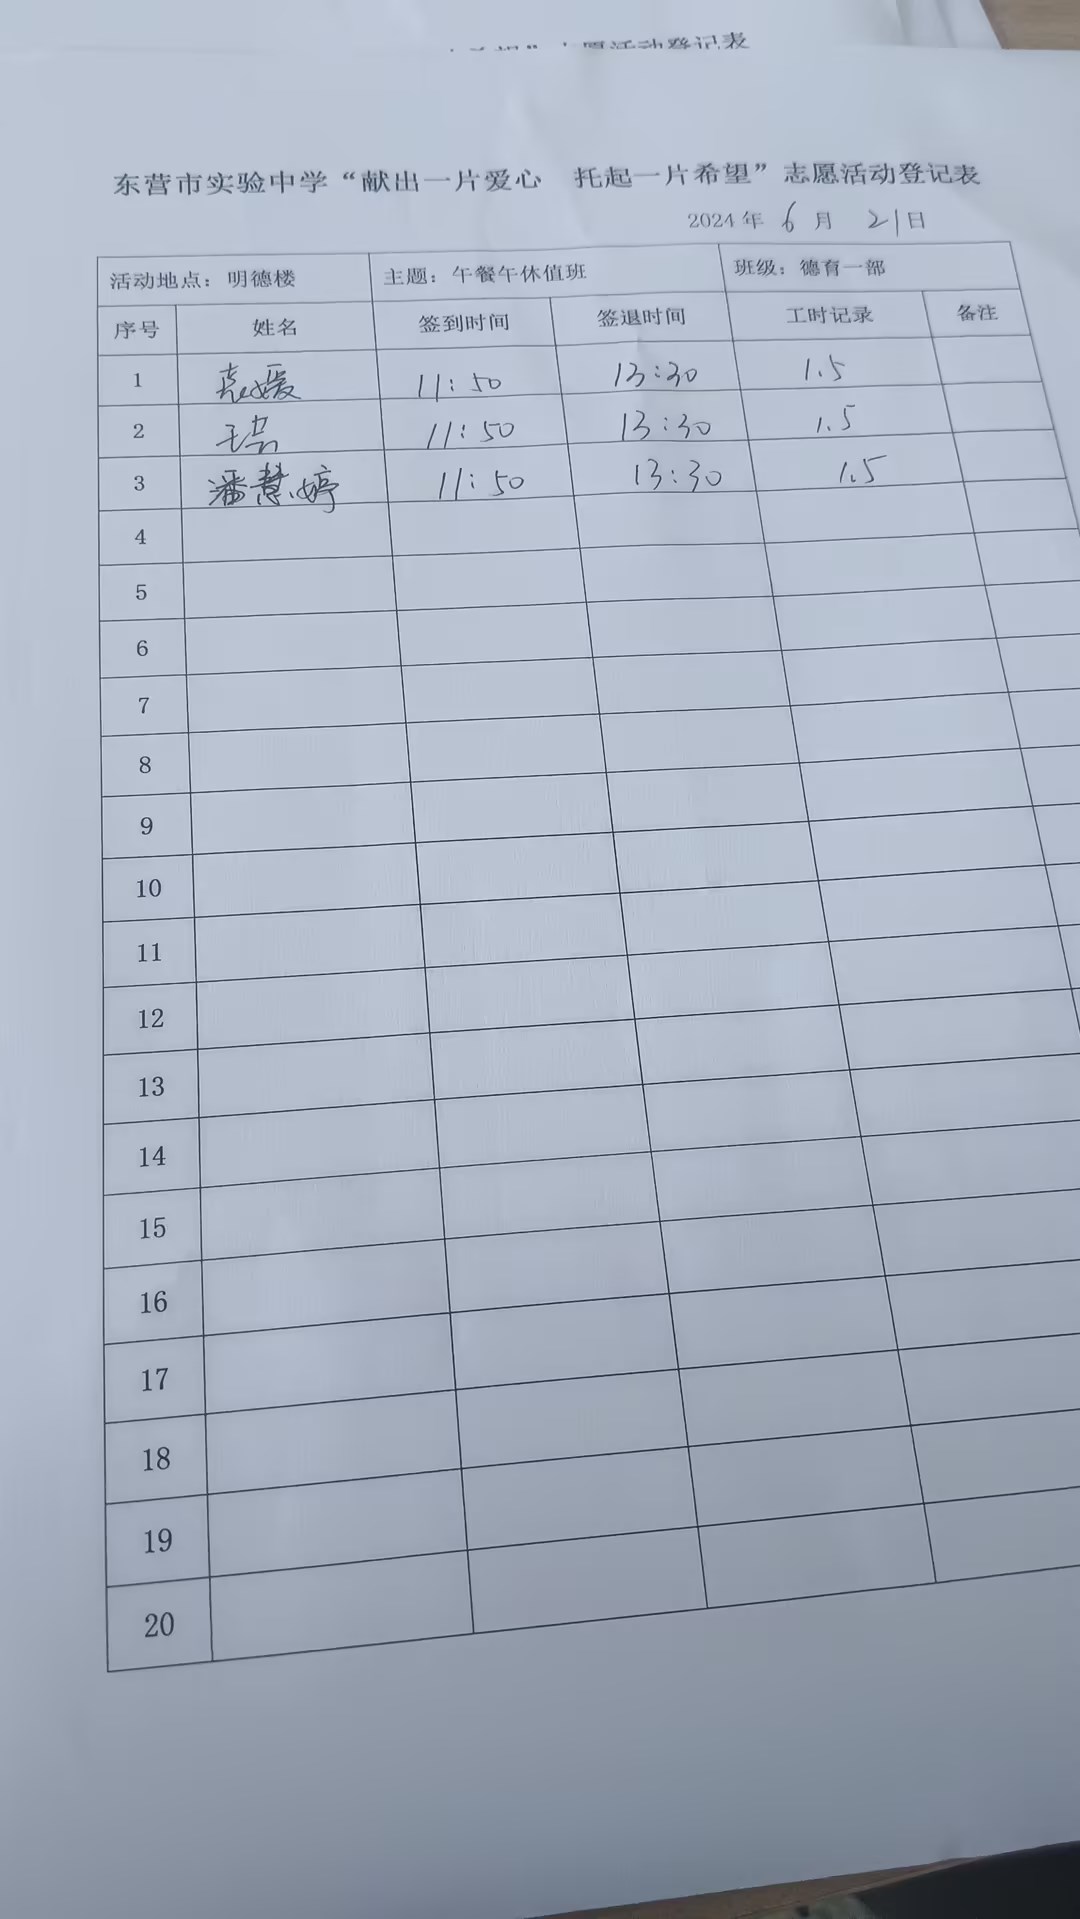 志愿活动登记表
东营市实验中学“献出一片爱心 托起一片希望”志愿活动登记表
2024年 6月 21日
活动地点：明德楼 主题：午餐午休值班 班级：德育一部
序号 姓名 签到时间 签退时间 工时记录 备注
1 11:50 13:30 1.5
2 11:50 13:30 1.5
3 潘慧婷 11:50 13:30 1.5
4
5
6
7
8
9
10
11
12
13
14
15
16
17
18
19
20